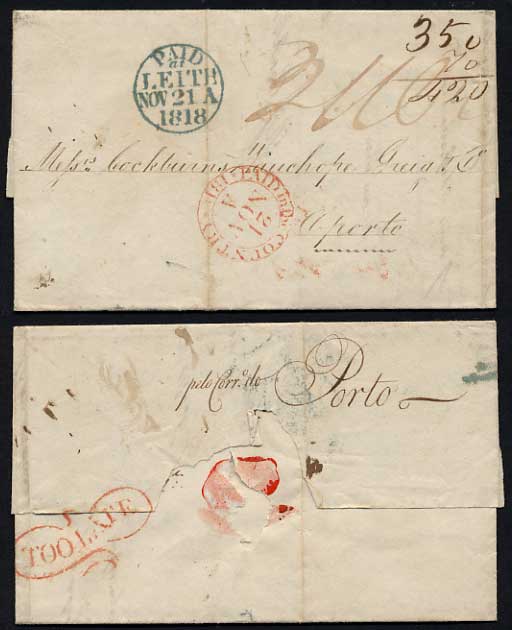 350
70
420
PAID
at
LEITH
NOV 21 A
1818
Messrs. Cockburns, Wauchope Greig & Co
PAID in the COUNTRY
A
NOV
21
Oporto
pelo Corro. do Porto
TOO LATE